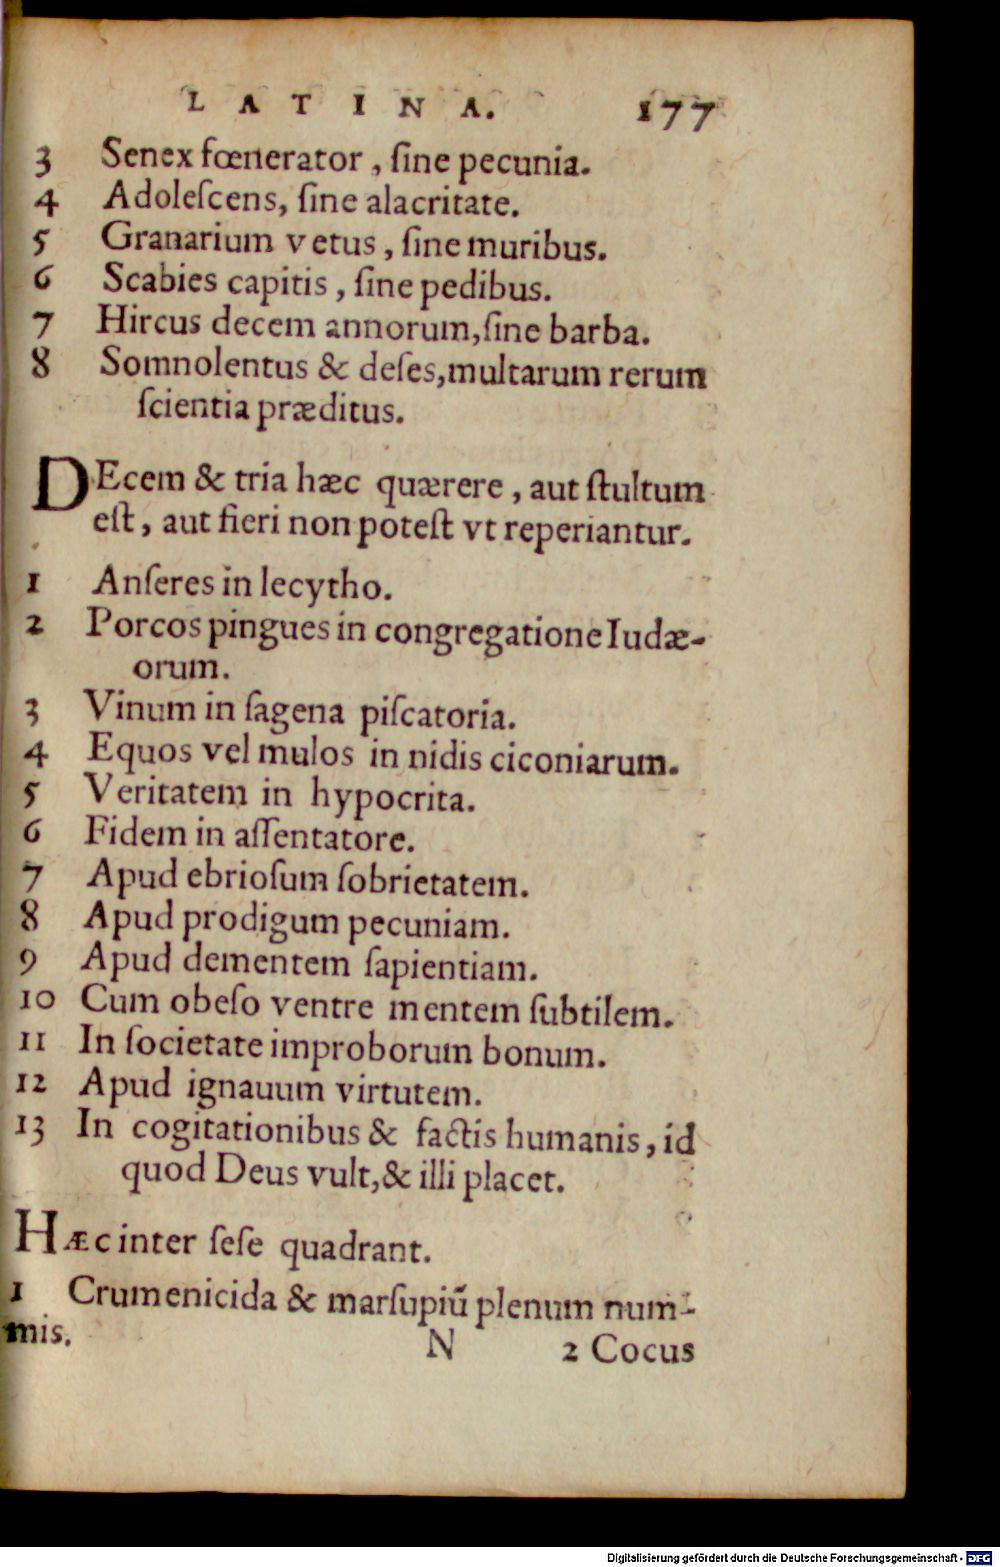 LATINA. 177
3 Senex fœnerator, ſine pecunia.
4 Adoleſcens, ſine alacritate.
5 Granarium vetus, ſine muribus.
6 Scabies capitis, ſine pedibus.
7 Hircus decem annorum, ſine barba.
8 Somnolentus & deſes, multarum rerum
ſcientia præditus.
DEcem & tria hæc quærere, aut ſtultum
eſt, aut fieri non poteſt vt reperiantur.
1 Anſeres in lecytho.
2 Porcos pingues in congregatione Iudæ-
orum.
3 Vinum in ſagena piſcatoria.
4 Equos vel mulos in nidis ciconiarum.
5 Veritatem in hypocrita.
6 Fidem in aſſentatore.
7 Apud ebrioſum ſobrietatem.
8 Apud prodigum pecuniam.
9 Apud dementem ſapientiam.
10 Cum obeſo ventre mentem ſubtilem.
11 In ſocietate improborum bonum.
12 Apud ignauum virtutem.
13 In cogitationibus & factis humanis, id
quod Deus vult, & illi placet.
HÆc inter ſeſe quadrant.
1 Crumenicida & marſupiũ plenum num-
mis.
N 2 Cocus
Digitalisierung gefördert durch die Deutsche Forschungsgemeinschaft - DFG